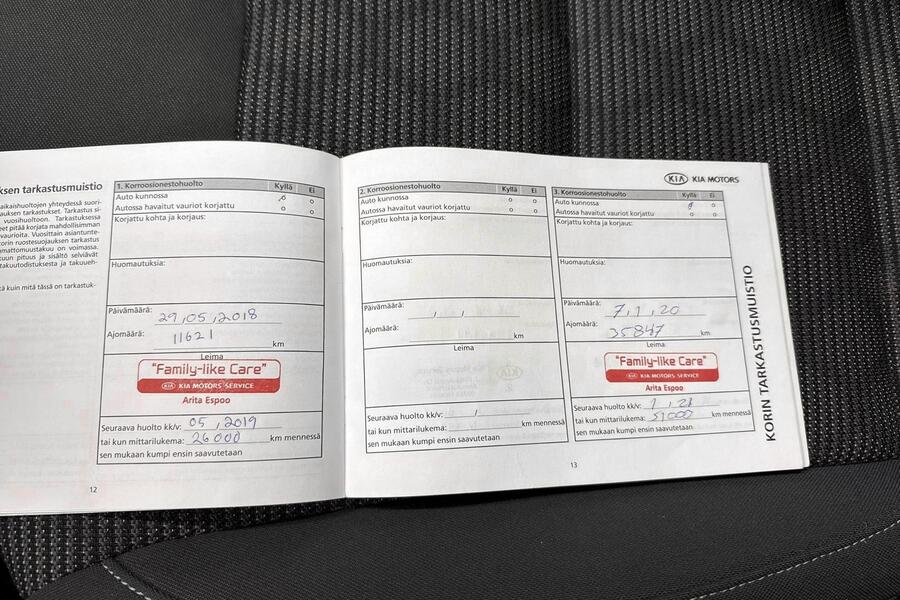 ksen tarkastusmuistio
aikaishuoltojen yhteydessä suori-
auksen tarkastukset. Tarkastus si-
vuosihuoltoon. Tarkastuksessa
eet pitää korjata mahdollisimman
vaurioita. Vuosittain asiantunte-
orin ruostesuojauksen tarkastus
mattomuustakuu on voimassa.
kuun pituus ja sisältö selviävät
takuutodistuksesta ja takuueh-
tä kuin mitä tässä on tarkastuk-
1. Korroosionestohuolto Kyllä Ei
Auto kunnossa
Autossa havaitut vauriot korjattu
Korjattu kohta ja korjaus:
Huomautuksia:
Päivämäärä: 29,05,2018
Ajomäärä: 11621 km
Leima
"Family-like Care"
KIA KIA MOTORS SERVICE
Arita Espoo
Seuraava huolto kk/v: 05,2019
tai kun mittarilukema: 26000 km mennessä
sen mukaan kumpi ensin saavutetaan
12
KIA KIA MOTORS
2. Korroosionestohuolto Kyllä Ei
Auto kunnossa
Autossa havaitut vauriot korjattu
Korjattu kohta ja korjaus:
Huomautuksia:
Päivämäärä: / /
Ajomäärä: km
Leima
Seuraava huolto kk/v: /
tai kun mittarilukema: km mennessä
sen mukaan kumpi ensin saavutetaan
3. Korroosionestohuolto Kyllä Ei
Auto kunnossa
Autossa havaitut vauriot korjattu
Korjattu kohta ja korjaus:
Huomautuksia:
Päivämäärä: 7,1,20
Ajomäärä: 35847 km
Leima
"Family-like Care"
KIA KIA MOTORS SERVICE
Arita Espoo
Seuraava huolto kk/v: 1,21
tai kun mittarilukema: 51000 km mennessä
sen mukaan kumpi ensin saavutetaan
13
KORIN TARKASTUSMUISTIO